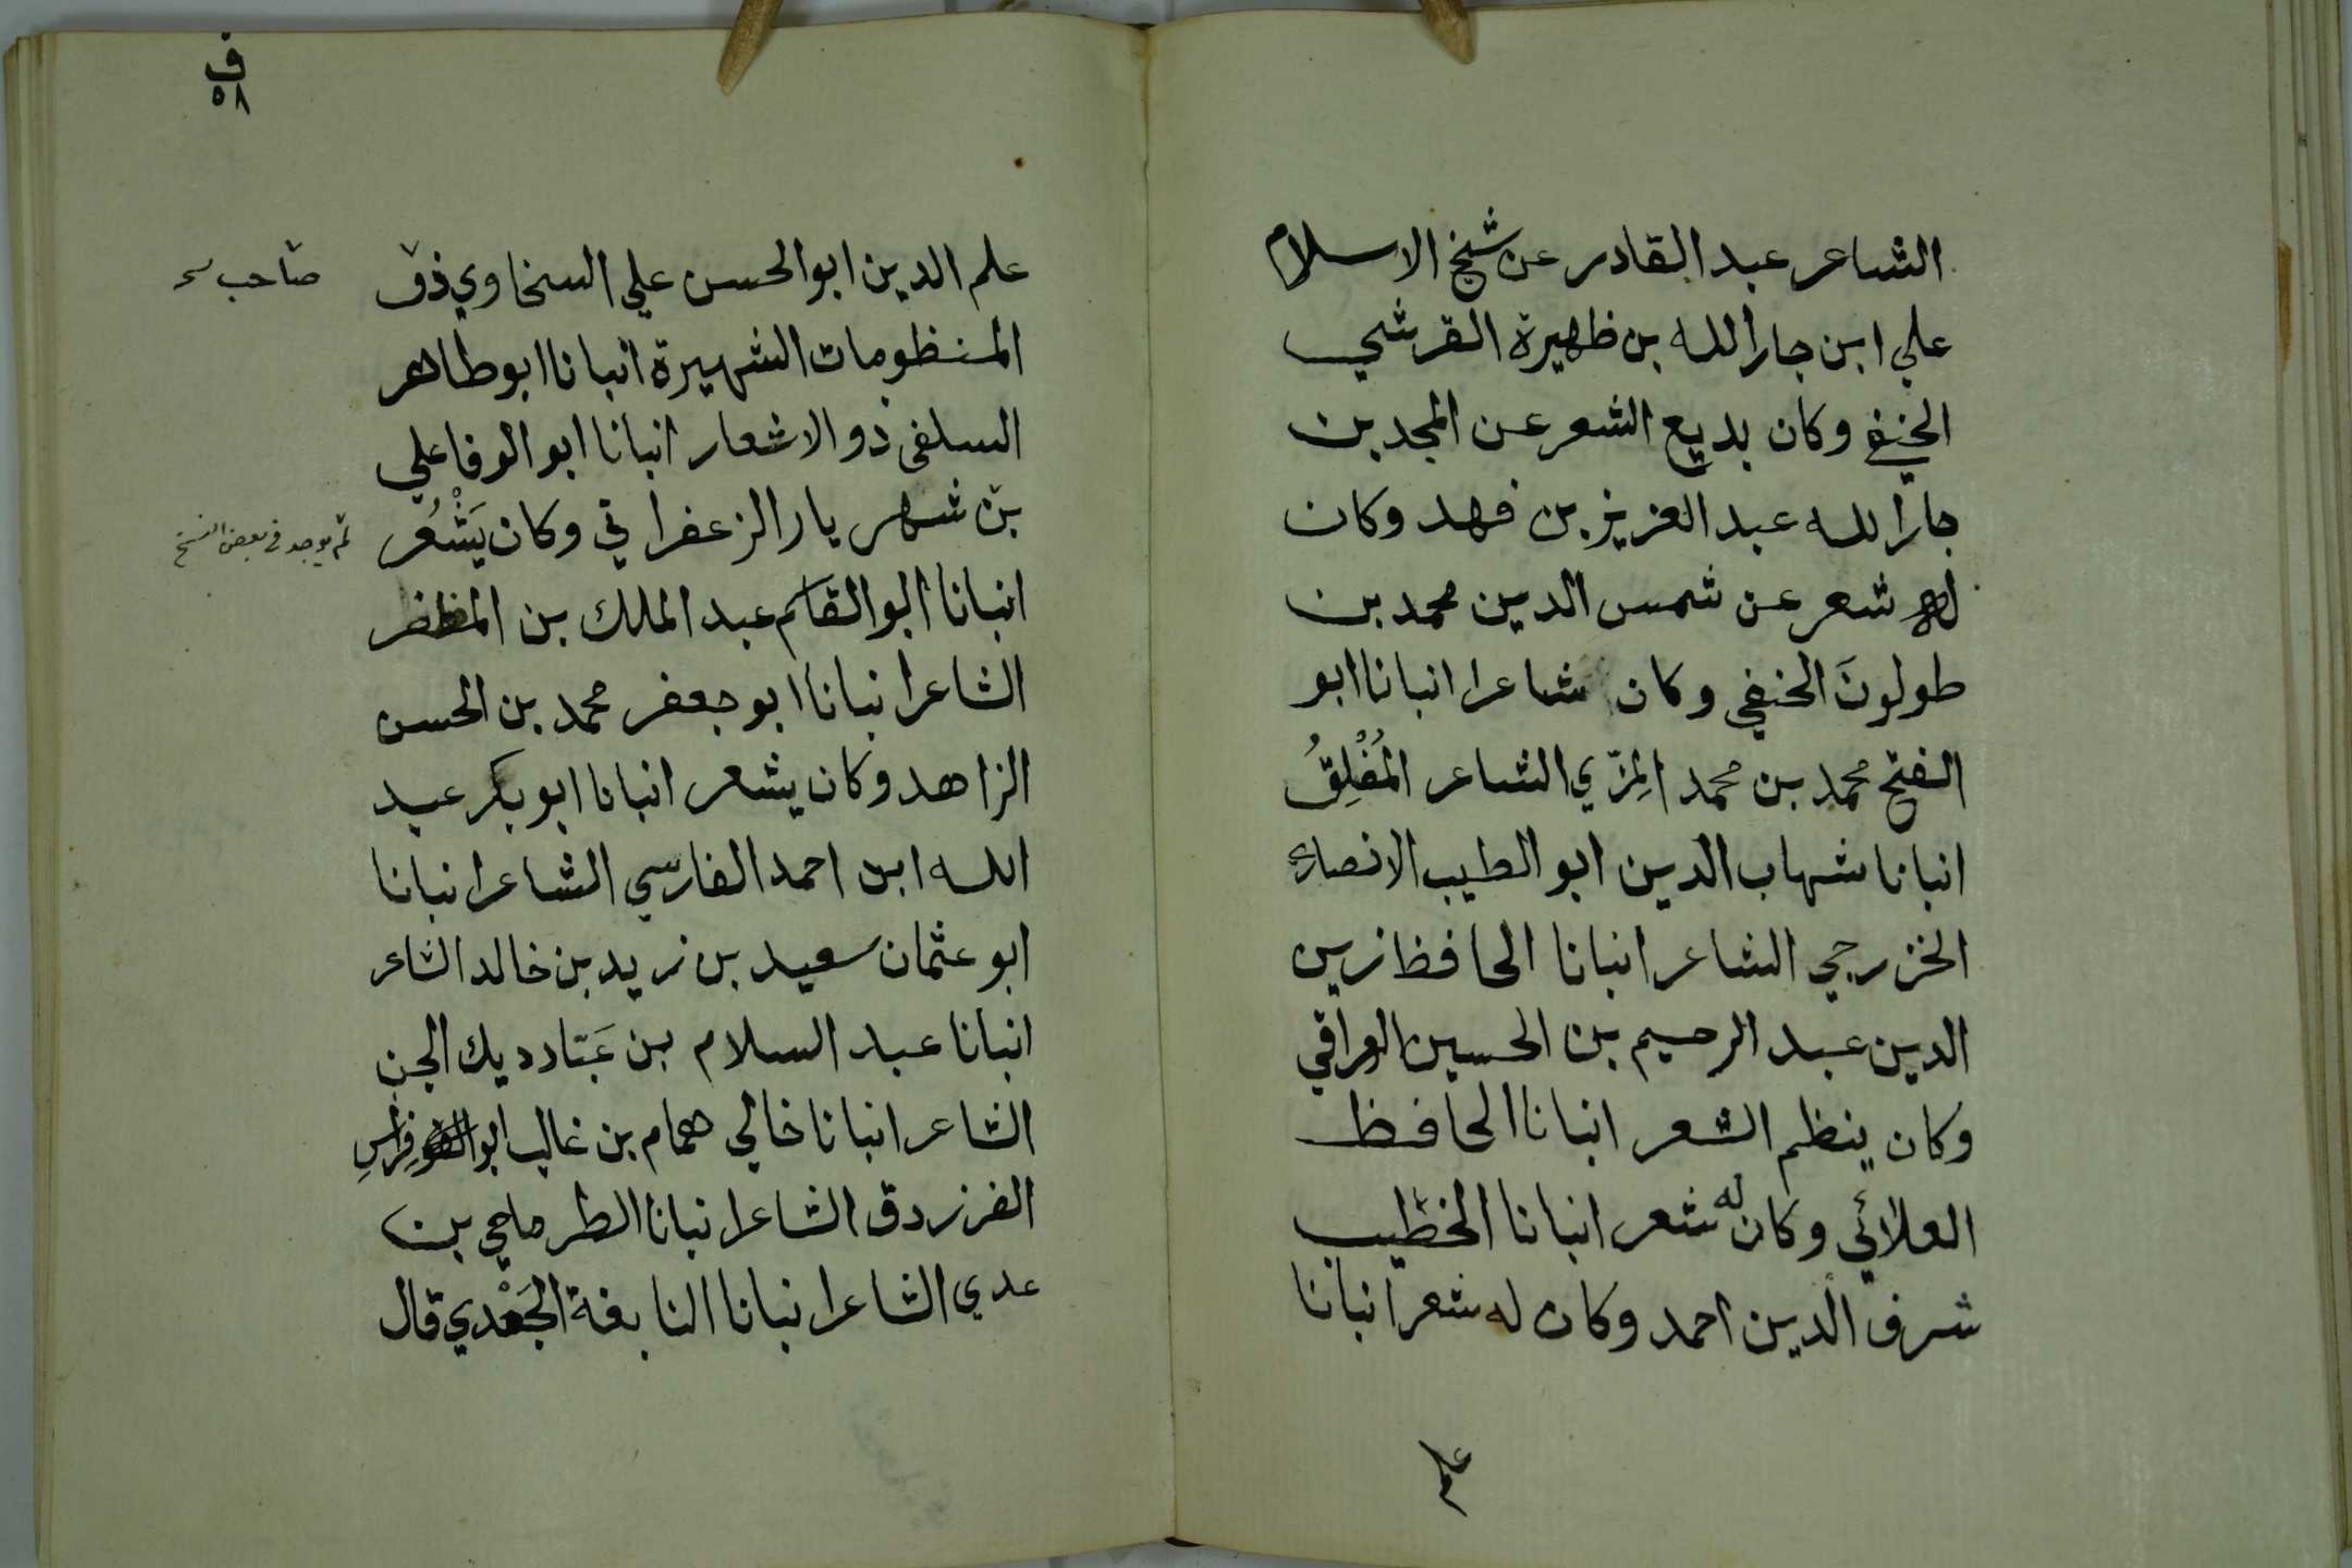 الشاعر عبد القادر عن شيخ الاسلام
علي ابن جار الله بن ظهيرة القرشي
الحنفي وكان بديع الشعر عن المجد بن
جار الله عبد العزيز بن فهد وكان
له شعر عن شمس الدين محمد بن
طولونَ الحنفي وكان شاعرا انبانا ابو
الفتح محمد بن محمد المِزّي الشاعر المُفْلِقُ
انبانا شهاب الدين ابو الطيب الانصاري
الخزرجي الشاعر انبانا الحافظ زين
الدين عبد الرحيم بن الحسين العراقي
وكان ينظم الشعر انبانا الحافظ
العلائي وكان له شعر انبانا الخطيب
شرف الدين احمد وكان له شعر انبانا
علم
ف
٥٨
علم الدين ابو الحسن علي السخاوي ذو
صاحب
المنظومات الشهيرة انبانا ابو طاهر
السلفي ذو الاشعار انبانا ابو الوفا علي
بن شهر يار الزعفراني وكان يَشْعُر
لم يوجد في بعض النسخ
انبانا ابو القاسم عبد الملك بن المظفر
الشاعر انبانا ابو جعفر محمد بن الحسن
الزاهد وكان يشعر انبانا ابو بكر عبد
الله ابن احمد الفارسي الشاعر انبانا
ابو عثمان سعيد بن زيد بن خالد الشاعر
انبانا عبد السلام بن عَبّاد ديك الجن
الشاعر انبانا خالي همام بن غالب ابو فِراسِ
الفرزدق الشاعر انبانا الطرماحي بن
عدي الشاعر انبانا النابغة الجَعْدي قال